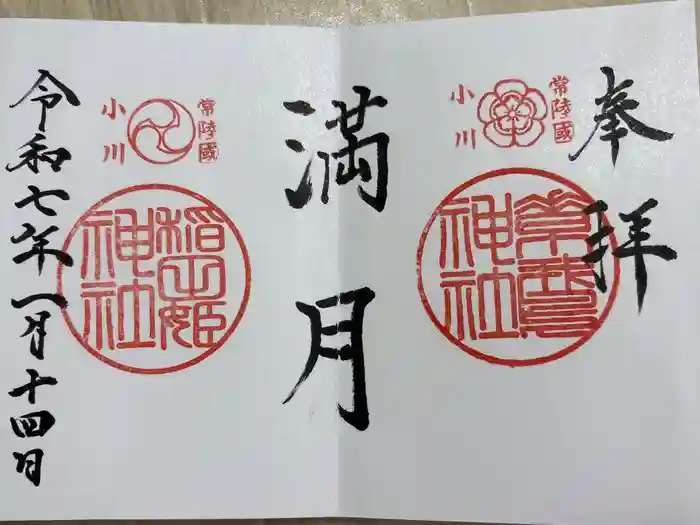 奉拝
常陸國
小川
素鵞
神社
満月
常陸國
小川
稲田姫
神社
令和七年一月十四日